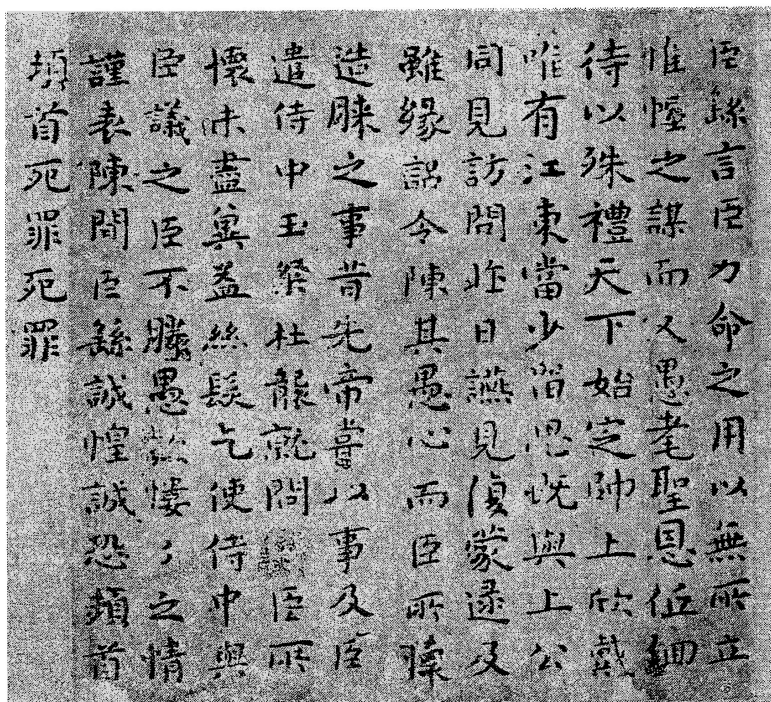 臣繇言臣力命之用以無所立
惟幄之謀而又愚耄聖恩低細
待以殊禮天下始定帥土欣戴
唯有江東當少留思既與上公
同見訪問昨日讌見復蒙逮及
雖緣詔令陳其愚心而臣所懷
造膝之事昔先帝嘗以事及臣
遣侍中王粲杜襲就問臣所
懷未盡冀益絲髮乞使侍中與
臣議之臣不勝愚款慺々之情
謹表陳聞臣繇誠惶誠恐頓首
頓首死罪死罪